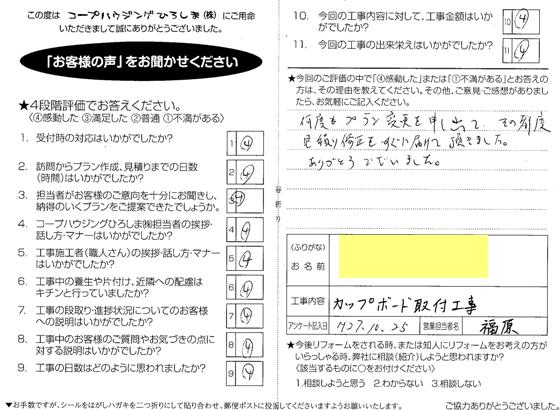 この度は コープハウジングひろしま(株) にご用命
いただきまして誠にありがとうございました。
「お客様の声」をお聞かせください
★4段階評価でお答えください。
〈④感動した ③満足した ②普通 ①不満がある〉
1. 受付時の対応はいかがでしたか?
1 ④
2. 訪問からプラン作成、見積りまでの日数
(時間)はいかがでしたか?
2 ④
3. 担当者がお客様のご意向を十分にお聞きし、
納得のいくプランをご提案できたでしょうか。
3 ④
4. コープハウジングひろしま㈱担当者の挨拶・
話し方・マナーはいかがでしたか?
4 ④
5. 工事施工者(職人さん)の挨拶・話し方・マナー
はいかがでしたか?
5 ④
6. 工事中の養生や片付け、近隣への配慮は
キチンと行っていましたか?
6 ④
7. 工事の段取り・進捗状況についてのお客様
への説明はいかがでしたか?
7 ④
8. 工事中のお客様のご質問やお気づきの点に
対する説明はいかがでしたか?
8 ④
9. 工事の日数はどのように思われましたか?
9 ④
10. 今回の工事内容に対して、工事金額はいか
がでしたか?
10 ④
11. 今回の工事の出来栄えはいかがでしたか?
11 ④
★今回のご評価の中で「④感動した」または「①不満がある」とお答え
の方は、その理由を教えてください。その他、ご意見・ご感想がありまし
たら、お気軽にご記入ください。
何度もプラン変更を申し出て、その都度
見積り修正をすぐに届けて頂きました。
ありがとうございました。
(ふりがな)
お名前
工事内容 カップボード取付工事
アンケート記入日 H27.10.25 営業担当者名 福原
★今後リフォームをされる時、または知人にリフォームをお考えの方が
いらっしゃる時、弊社に相談(紹介)しようと思われますか?
〈該当するものに○をお付けください〉
1.相談しようと思う 2.わからない 3.相談しない
▼お手数ですが、シールをはがしハガキを二つ折りにして貼り合わせ、郵便ポストに投函してくださいますようお願いいたします。
ご協力ありがとうございました。